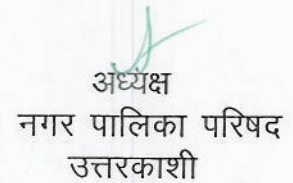 अध्यक्ष
नगर पालिका परिषद
उत्तरकाशी